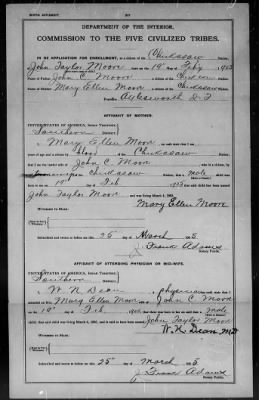 BIRTH AFFIDAVIT.
DEPARTMENT OF THE INTERIOR,
COMMISSION TO THE FIVE CIVILIZED TRIBES.
IN RE APPLICATION FOR ENROLLMENT, as a citizen of the Chickasaw Nation, of
John Taylor Moore, born on the 19th day of Feby, 1903
Name of Father: John C. Moore a citizen of the Chickasaw Nation.
Name of Mother: Mary Ellen Moore a citizen of the Chickasaw Nation.
Postoffice Aylesworth I.T.
AFFIDAVIT OF MOTHER.
UNITED STATES OF AMERICA, Indian Territory,
Southern District.
I, Mary Ellen Moore, on oath state that I am
years of age and a citizen by blood, of the Chickasaw Nation;
that I am the lawful wife of John C. Moore, who is a citizen, by
of the Chickasaw Nation; that a male child was
born to me on 19th day of Feb, that said child has been named
John Taylor Moore, and was living March 4, 1905.
Mary Ellen Moore
Subscribed and sworn to before me this 25 day of March, 1905
Frank Adams
Notary Public.
AFFIDAVIT OF ATTENDING PHYSICIAN OR MID-WIFE.
UNITED STATES OF AMERICA, Indian Territory,
Southern District.
I, W. N. Dean, a physician, on oath state that I
attended on Mrs. Mary Ellen Moore, wife of John C. Moore
on the 19th day of Feb, that there was born to her on said date a male
child; that said child was living March 4, 1905, and is said to have been named John Taylor Moore
W. N. Dean M.D.
Subscribed and sworn to before me this 25 day of March, 1905
Frank Adams
Notary Public.